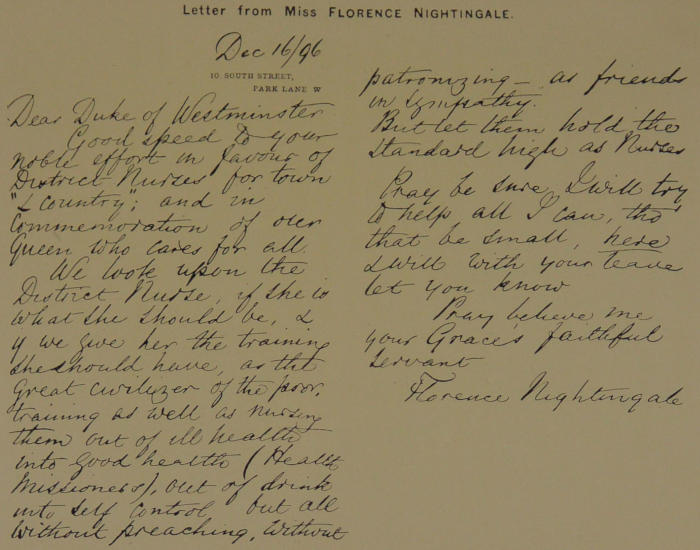 Letter from Miss FLORENCE NIGHTINGALE.
Dec 16/96
10 SOUTH STREET,
PARK LANE W
Dear Duke of Westminster
Good speed to your
noble effort in favour of
District Nurses for town
"& country"; and in
Commemoration of our
Queen who cares for all.
We look upon the
District Nurse, if she is
what she should be, &
if we give her the training
she should have, as the
great civilizer of the poor,
training as well as nursing
them out of ill health
into good health (Health
Missioners), out of drink
into self control but all
without preaching, without
patronizing — as friends
in sympathy.
But let them hold the
standard high as Nurses
Pray be sure I will try
to help all I can, tho'
that be small, here
I will with your leave
let you know
Pray believe me
your Grace's faithful
servant
Florence Nightingale